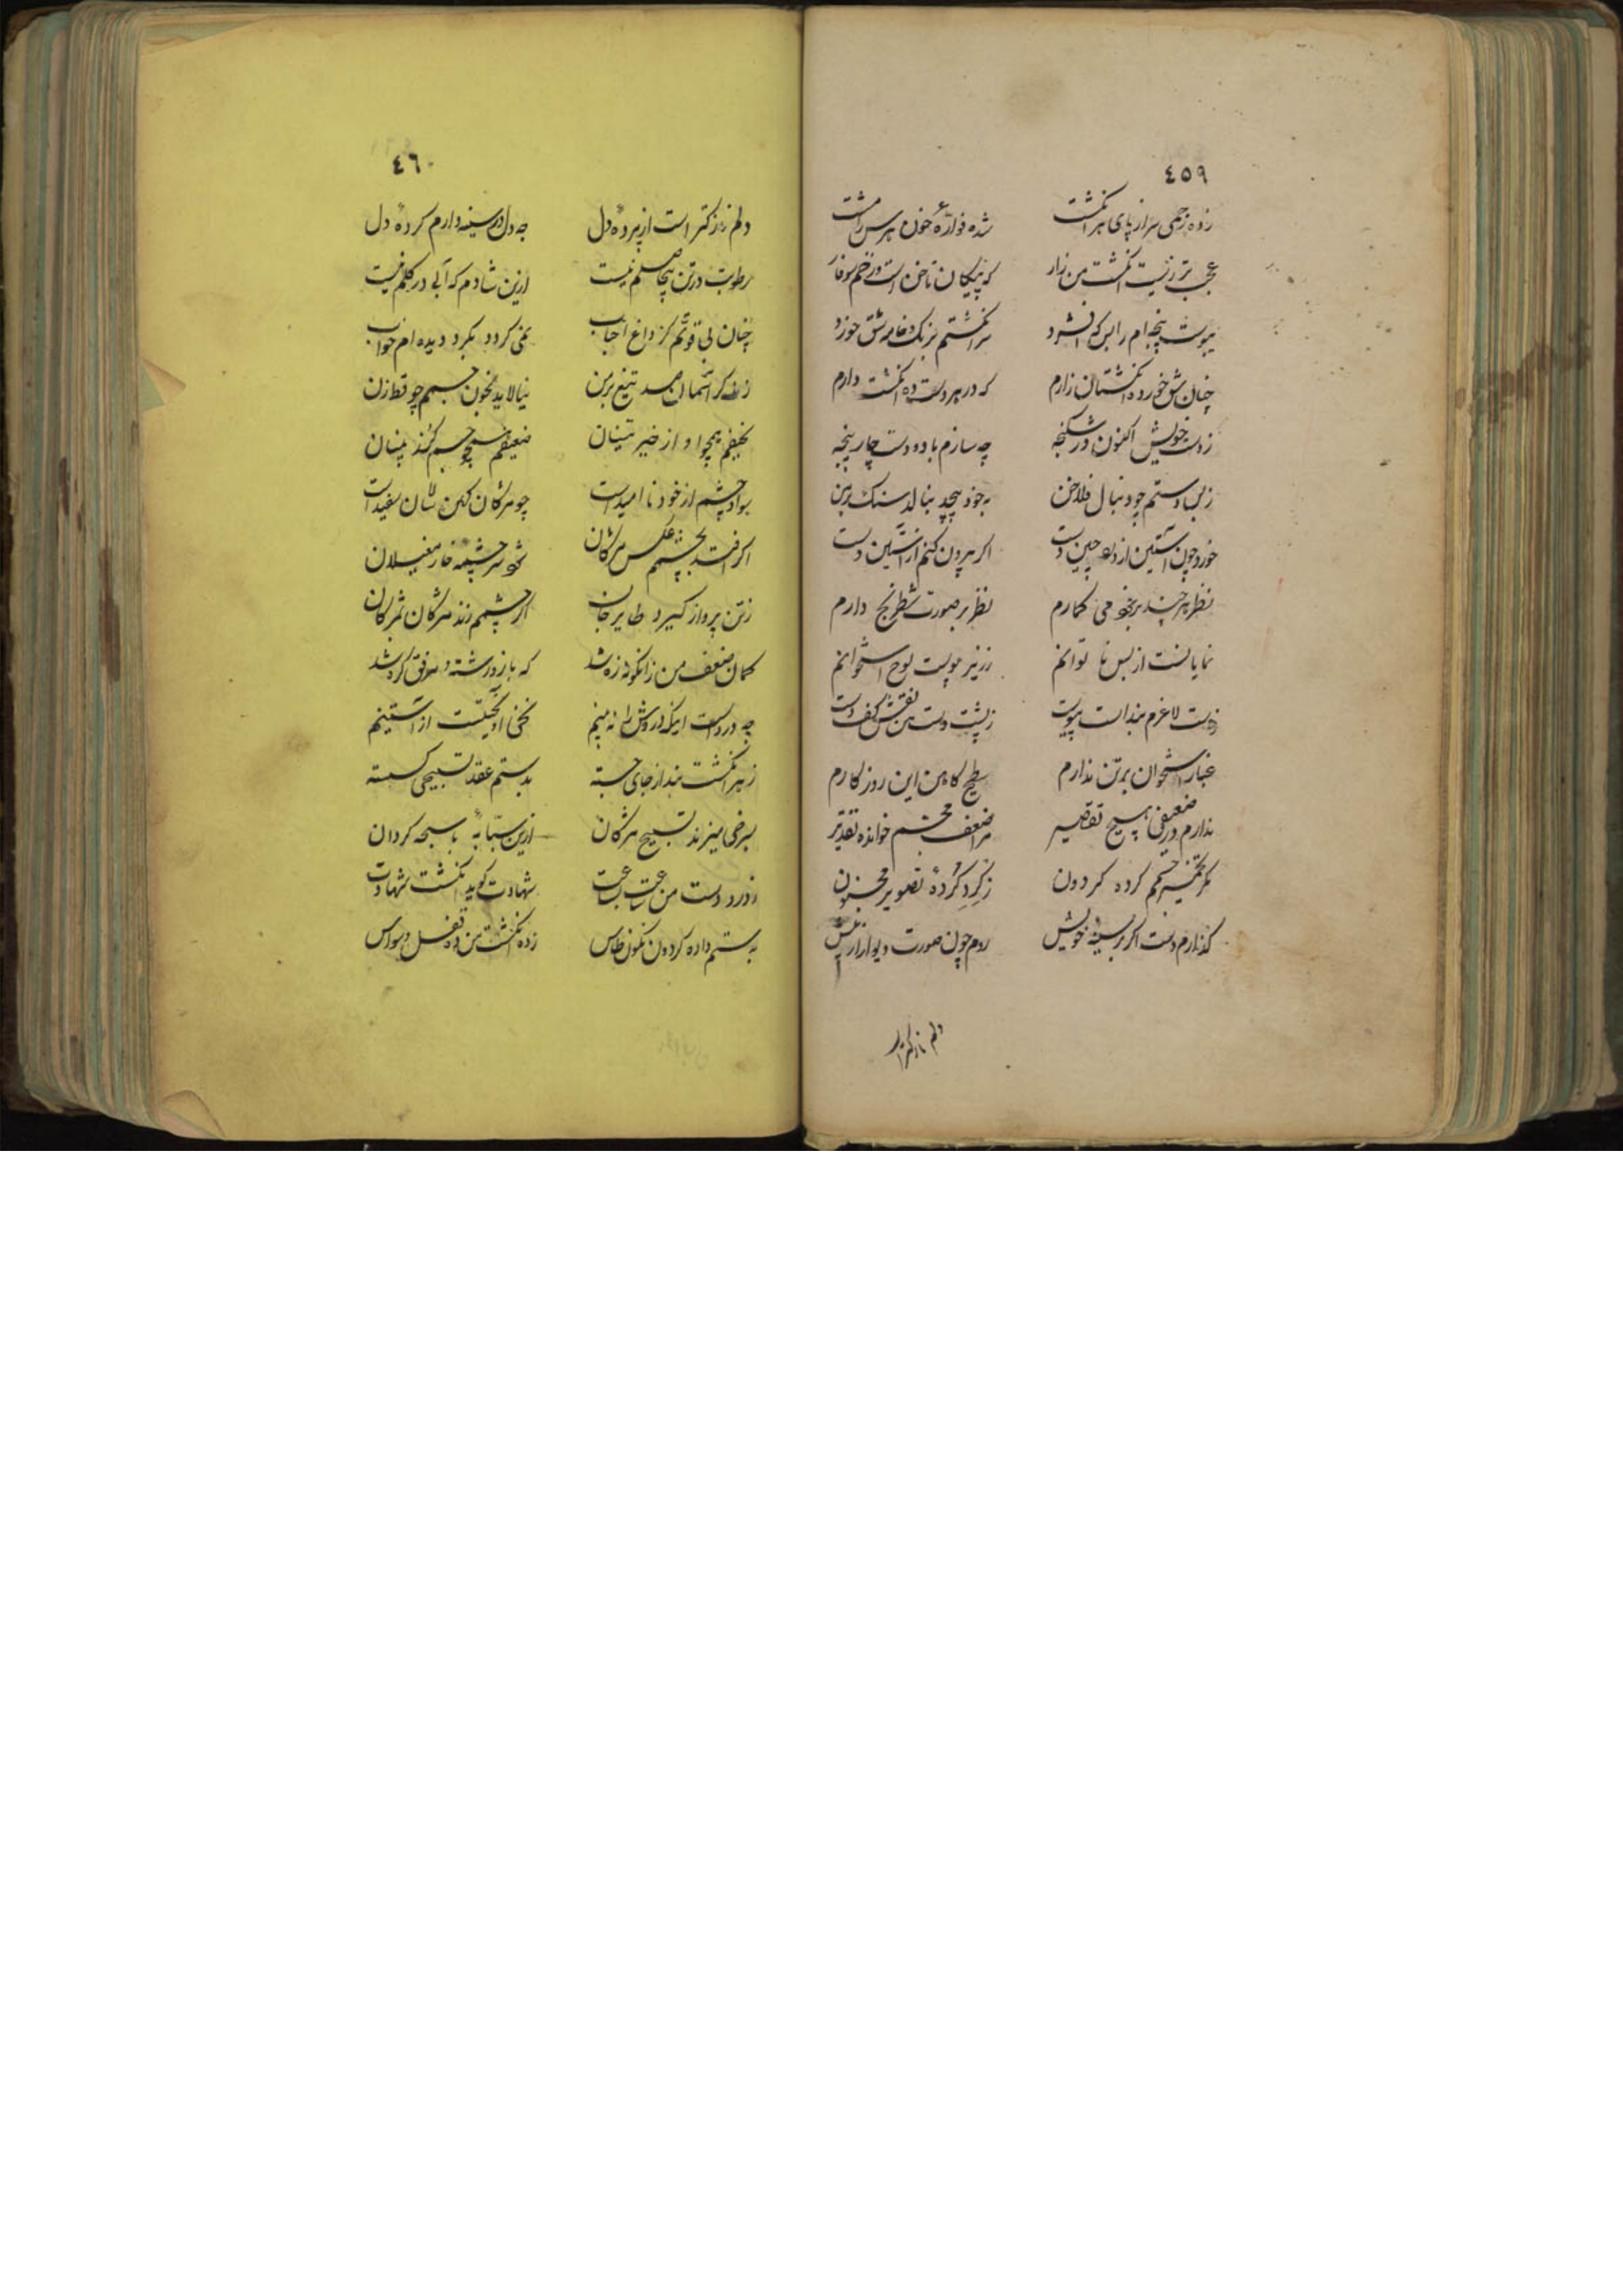 ٤٥٩
زده زخمی سر از پای هر انگشت شده فوارهٔ خون هر سر انگشت
عجب تیریست انگشت من زار که پیکان ناخن است و زخم سوفار
یبوست پنجه ام را بس که افشرد سر انگشتم برنک خامه شق خورد
چنان شق خورده انگشتان زارم که در هر دست ده انگشت دارم
ز دست خویش اکنون در شکنجه چه سازم با دو دست چار پنجه
ز بس باد ستم چو دنبال فلاخن بخود پیچد بنالد سنک بر من
خورد چون آستین از دل چین دست اگر بیرون کنم از آستین دست
نظر هر چند بر خود می کمارم نظر بر صورت شطرنج دارم
نمایانست از بس نا توانم ز زیر پوست لوح استخوانم
دست لاغرم بند است پیوست ز پشت دست من نقش کف دست
غبار استخوان بر تن ندارم کاهن این روزکارم
ندارم در ضعیفی هیچ تقصیر مرا ضعف مجسم خوانده تقدیر
مگر تخمیر جسمم کرده کردون ز کرد کردهٔ تصویر مجنون
گذارم دست اگر بر سینهٔ خویش روم چون صورت دیوار از خویش
دلم نازکتر از
٤٦٠
دلم نازکتر است از پردهٔ دل چه دل در سینه دارم کردهٔ دل
رطوبت در تن بیحاصلم نیست ازین شادم که آبی در کلم نیست
چنان بی قوتم کز داغ احباب نمی کردد بکرد دیده ام خواب
زند کر آسمان صد تیغ بر من نیالاید بخون جسمم چو قط زن
نحیفم همچو او از خیر بینان ضعیفم همچو جسم کند بینان
سواد چشمم از خود نا امید است چو مژگان کهن سالان سفید است
اگر افتد بچشمم عکس مژگان شود سرچشمهٔ خار مغیلان
ز تن پرواز کیرد طایر جان اگر چشمم زند مژگان بمژگان
کمان ضعف من زانکونه زه شد که بازو رشته و مرفق کره شد
چه دردست اینکه در دوش نه بینم نخی آویخته است از آستینم
ز هر انگشت بند از جای جسته بدستم عقد تسبیحی کسسته
سرخی میزند تسبیح مژگان ازین سبابهٔ با سبحه کردان
ز درد دست من ساعت بساعت شهادت کوید انگشت شهادت
بدستم داده کردون نکون طاس زده انگشت من ده قفل وسواس